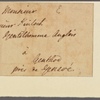 Monsieur
Gentilhomme Anglois
à
Genthod
près de Genève